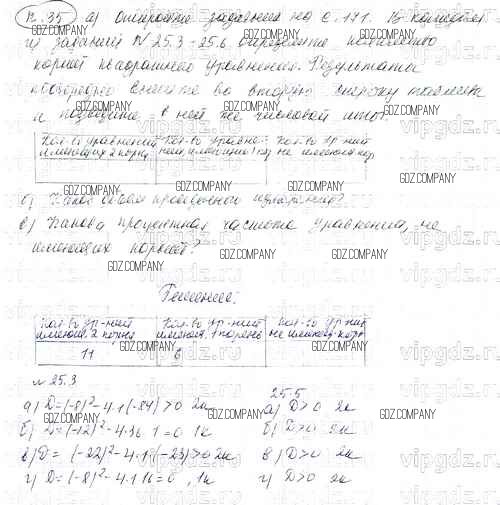 п. 35 а) Откройте задачник на с. 171. В каждом
из заданий №25.3-25.6 определите количество
корней квадратного уравнения. Результаты
во вторую строку таблицы
и подведите в ней же числовой итог.
Кол-во уравнений имеющих 2 корня
Кол-во уравне- ний, имеющих 1 кор
Кол-во ур-ний не имеющих кор
б) Каков объем проведенного измерения?
в) Какова процентная частота уравнений, не
имеющих корней?
Решение:
Кол-во ур-ний имеющ. 2 корня
Кол-во ур-ний имеющ. 1 корень
Кол-во ур-ний не имеющ. корн
11
6
№ 25.3
а) D=(-8)²-4·1(-84)>0 2к
б) D=(-12)²-4·36·1=0 1к
в) D=(-22)²-4·1·(-23)>0 2к
г) D=(-8)²-4·1·16=0, 1к
25.5
а) D>0 2к
б) D>0 2к
в) D>0 2к
г) D>0 2к
GDZ.COMPANY
vipgdz.ru